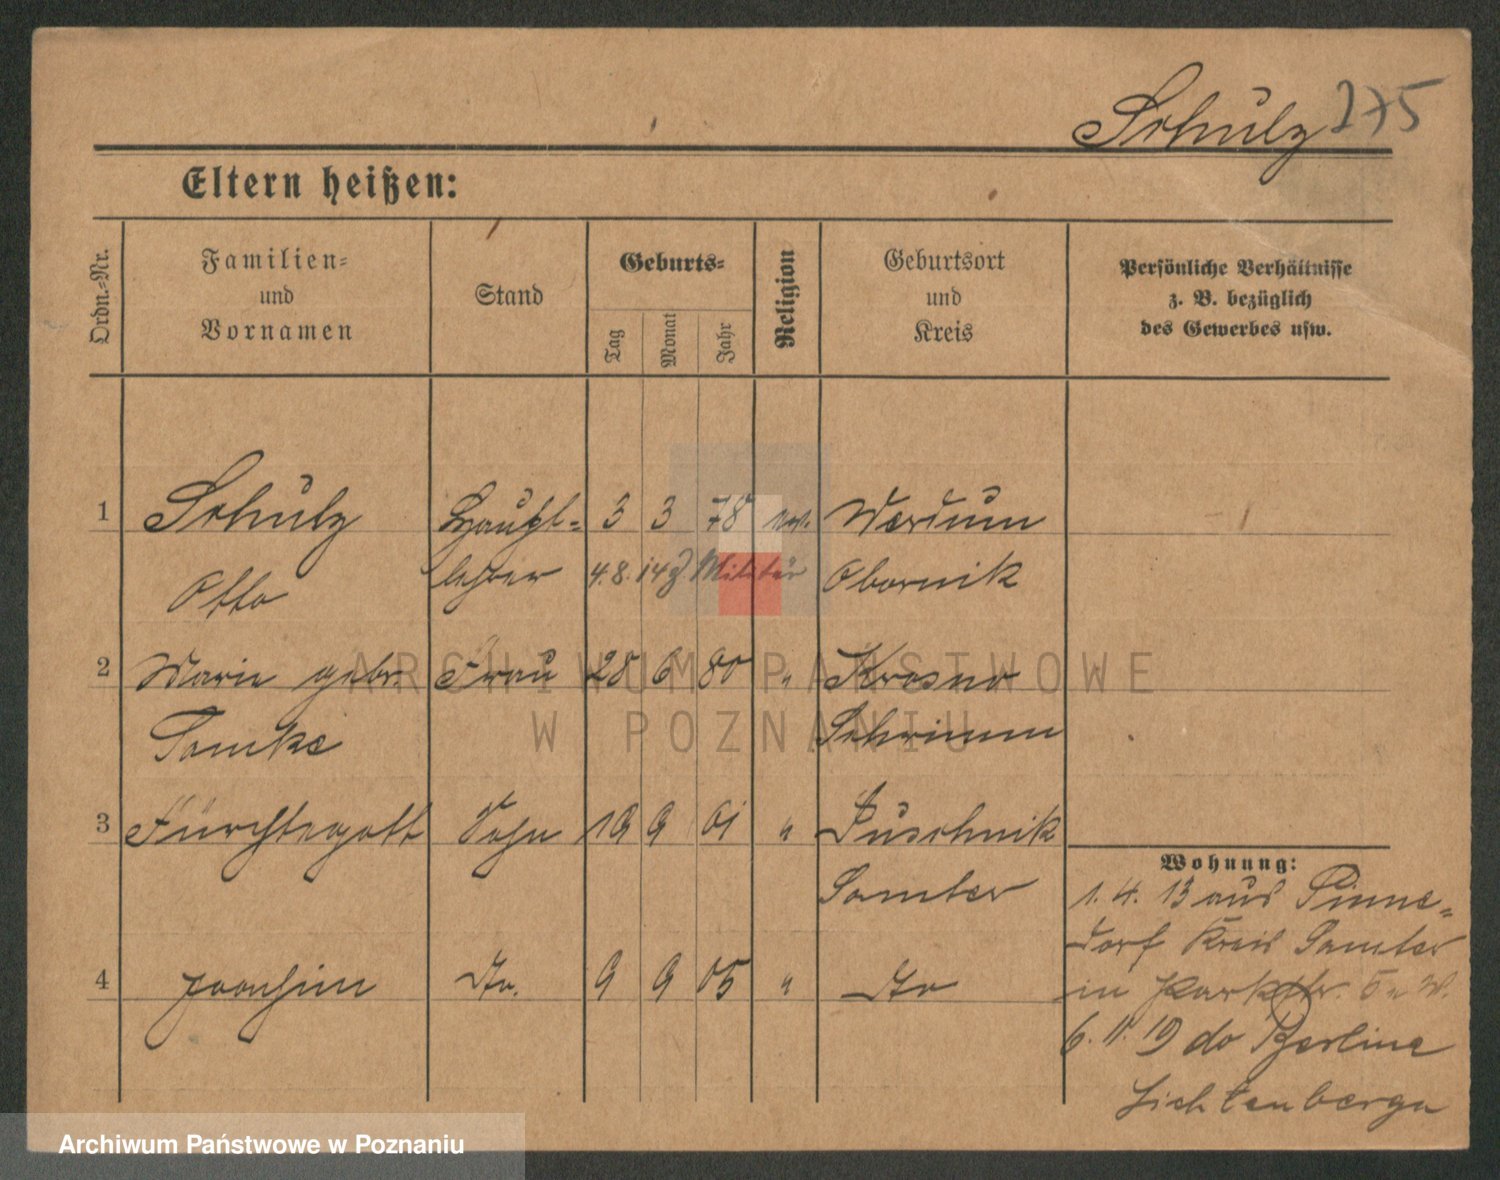 Schulz 275
Eltern heißen:
Ordn.-Nr.
Familien-
und
Vornamen
Stand
Geburts-
Tag
Monat
Jahr
Religion
Geburtsort
und
Kreis
Persönliche Verhältnisse
z. B. bezüglich
des Gewerbes usw.
1 Schulz Haupt- 3 3 78 ev.
Otto lehrer 4.8.14 z Militär Obornik
2 Marie gebr. Frau 28 6 80 " Krosno
Tomke Schrimm
3 Fürchtegott Sohn 19 9 01 " Duschnik
Samter
4 Joachim Do. 9 9 05 " Do
Wohnung:
1. 4. 13 aus Pinne-
dorf Kreis Samter
in Parkstr. 5 W.
6. 11. 19 do Berlina
Lichtenberga
ARCHIWUM PAŃSTWOWE
W POZNANIU
Archiwum Państwowe w Poznaniu